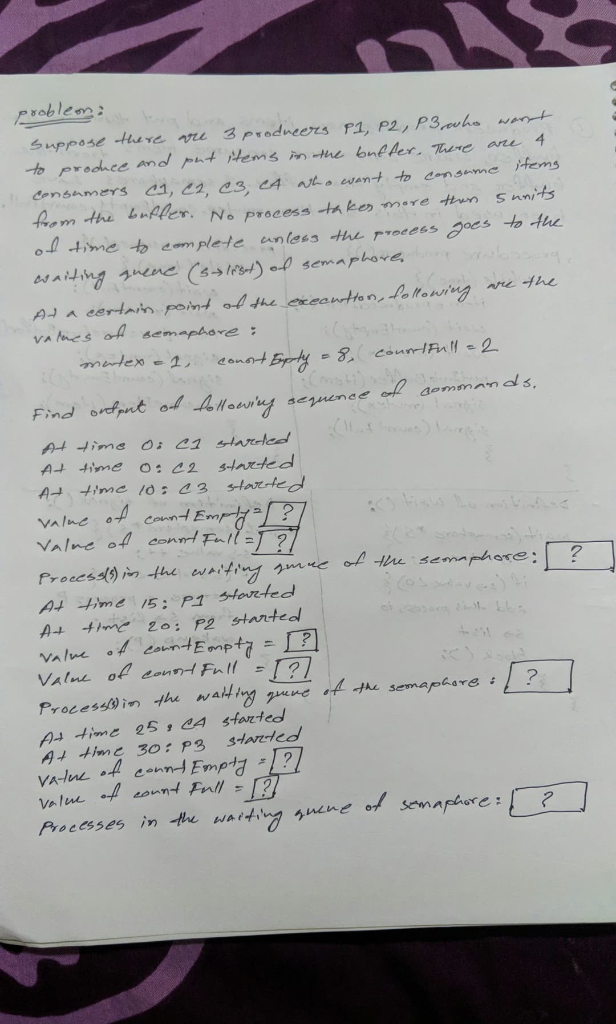 problem:
Suppose there are 3 producers P1, P2, P3, who want
to produce and put items in the buffer. There are 4
consumers C1, C2, C3, C4 who want to consume items
from the buffer. No process takes more than 5 units
of time to complete unless the process goes to the
waiting queue (s→list) of semaphore.
At a certain point of the execution, following are the
values of semaphore :
mutex = 1, count Empty = 8, countFull = 2
Find output of following sequence of commands.
At time 0: C1 started
At time 0: C2 started
At time 10: C3 started
Value of countEmpty = ?
Value of countFull = ?
Process(s) in the waiting queue of the semaphore: ?
At time 15: P1 started
At time 20: P2 started
Value of countEmpty = ?
Value of countFull = ?
Process(s) in the waiting queue of the semaphore : ?
At time 25: C4 started
At time 30: P3 started
Value of countEmpty = ?
Value of count Full = ?
Processes in the waiting queue of semaphore: ?